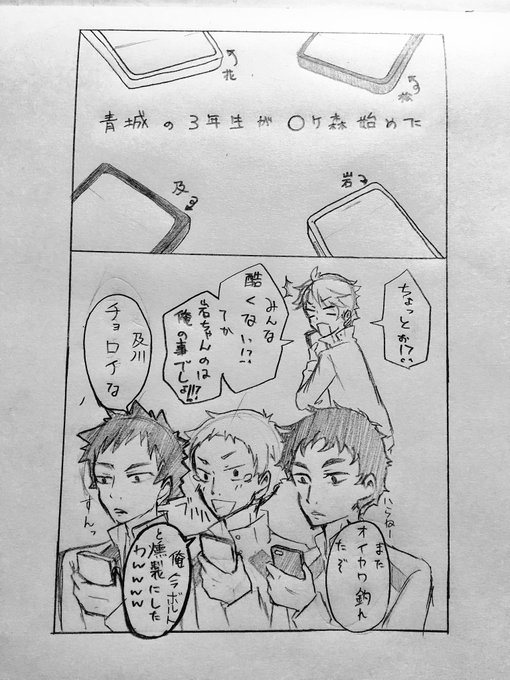 松
花
青城の3年生が〇ケ森始めた
岩
及
ちょっとぉ!?
みんな
酷くない!?
てか
岩ちゃんのは
俺の事でしょ!!?
また
オイカワ釣れ
たぞ
いらねー
俺
と燻製にした
わwwww
及川
チョロイな
すんっ